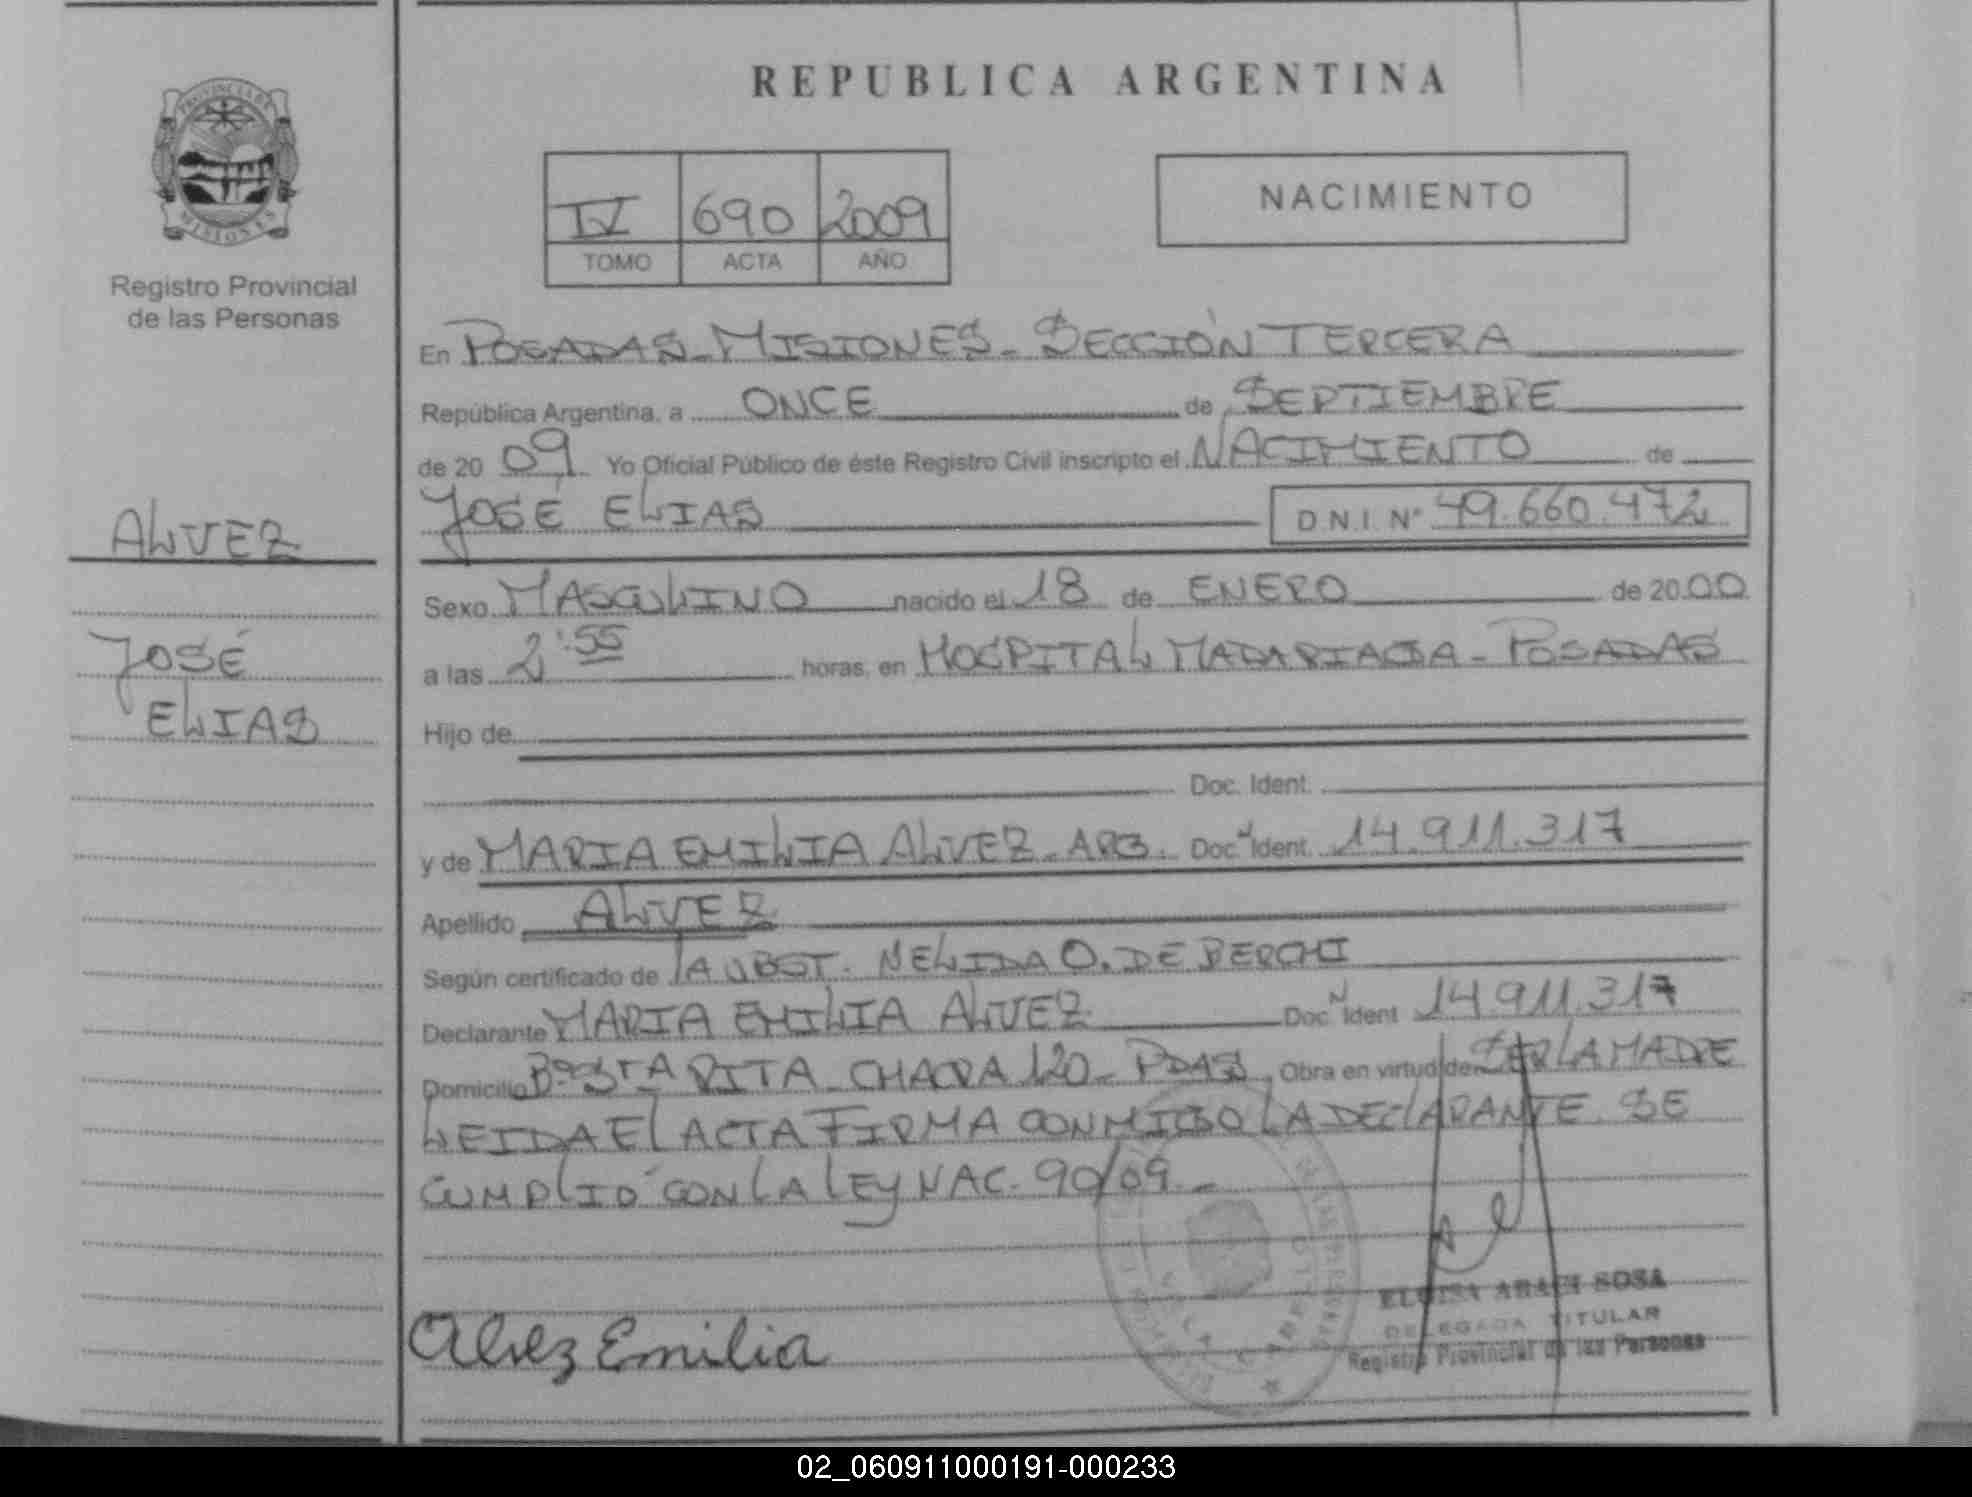 PROVINCIA DE
MISIONES
Registro Provincial
de las Personas
ALVEZ
JOSÉ
ELIAS
REPUBLICA ARGENTINA
IV 690 2009
TOMO ACTA AÑO
NACIMIENTO
En POSADAS - MISIONES - SECCIÓN TERCERA
República Argentina, a ONCE de SEPTIEMBRE
de 20 09 Yo Oficial Público de éste Registro Civil inscripto el NACIMIENTO de
JOSÉ ELIAS D.N.I. Nº 49.660.472
Sexo MASCULINO nacido el 18 de ENERO de 20 00
a las 2:55 horas, en HOSPITAL MADARIAGA - POSADAS
Hijo de
Doc. Ident.
y de MARIA EMILIA ALVEZ - ARG. Doc. N Ident. 14.911.317
Apellido ALVEZ
Según certificado de LA OBST. NELIDA O. DE BERCHI
Declarante MARIA EMILIA ALVEZ Doc. N Ident 14.911.317
Domicilio Bº STA RITA - CHACRA 120 - PDAS Obra en virtud de SER LA MADRE
LEIDA El ACTA FIRMA CONMIGO LA DEClARANTE. SE
CUMPLIÓ CON LA LEY NAC. 90/09.-
Alvez Emilia
ELOISA ARACI SOSA
DELEGADA TITULAR
Registro Provincial de las Personas
02_060911000191-000233